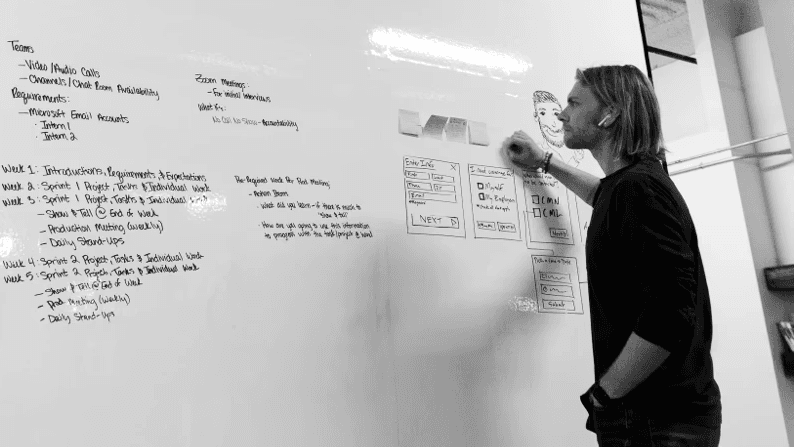 Teams
- Video/Audio Calls
- Channels/Chat Room Availability
Requirements:
- Microsoft Email Accounts
· Intern 1
· Intern 2
Week 1: Introductions, Requirements & Expectations
Week 2: Sprint 1 Project Tasks & Individual Work
Week 3: Sprint 1 Project Tasks & Individual Work
- Show & Tell @ End of Week
- Production Meeting (weekly)
- Daily Stand-Ups
Week 4: Sprint 2 Project Tasks & Individual Work
Week 5: Sprint 2 Project Tasks & Individual Work
- Show & Tell @ End of Week
- Prod Meeting (Weekly)
- Daily Stand-Ups
Zoom Meetings:
- For initial Interviews
What if's:
No Call No Show - Accountability
Pre-Required Work For Prod Meeting
- Action Items
- What did you learn - if there is much to
"Show & Tell"
- How are you going to use this information
to progress with the task/project @ hand
Enter Info X
NEXT
I need coverage for
Myself
My Employees
CMN
CML
Submit